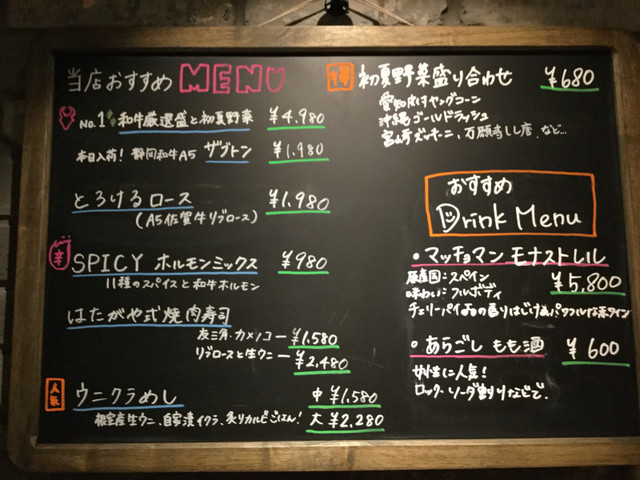 当店おすすめ MENU
No.1 和牛厳選盛と初夏野菜 ¥4.980
本日入荷! 静岡和牛A5 ザブトン ¥1.980
とろけるロース ¥1.980
(A5佐賀牛リブロース)
辛 SPICY ホルモンミックス ¥980
11種のスパイスと和牛ホルモン
はたがや式焼肉寿司
友三角・カメノコー ¥1.580
リブロースと生ウニー ¥2.480
人気 ウニクラめし 中 ¥1.580
根室産生ウニ、自家漬イクラ、炙りカルビごはん! 大 ¥2.280
得 初夏野菜盛り合わせ ¥680
愛知向けヤングコーン
沖縄ゴールドラッシュ
宮崎ズッキーニ、万願寺しし唐、など…
おすすめ
Drink Menu
・マッチョマン モナストレル
原産国:スペイン ¥5,800
味わい:フルボディ
チェリーパイ
の香りはじけるパワフルな赤ワイン
・あらごし もも酒 ¥600
女性に人気!
ロック・ソーダ割りなどで。